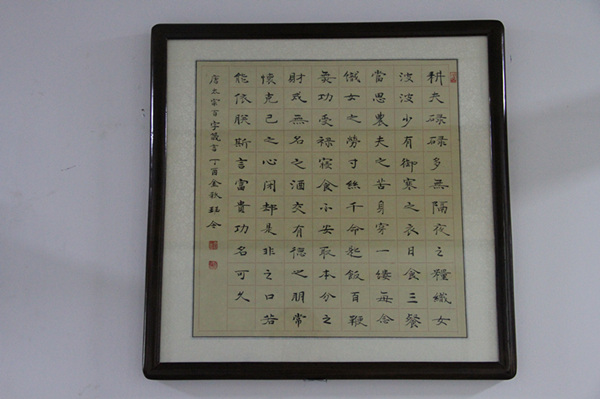 耕夫碌碌多無隔夜之糧織女
波波少有御寒之衣日食三餐
當思農夫之苦身穿一縷每念
織女之勞寸絲千命匙飯百鞭
無功受祿寢食不安取本分之
財戒無名之酒交有德之朋常
懷克己之心閉却是非之口若
能依朕斯言富貴功名可久
唐太宗百字箴言丁酉金秋